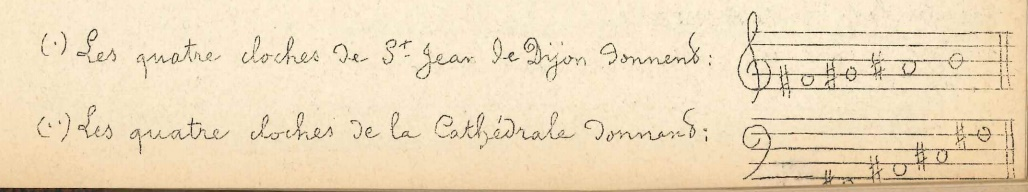 (·) Les quatre cloches de St Jean de Dijon donnent:
(··) Les quatre cloches de la Cathédrale donnent: